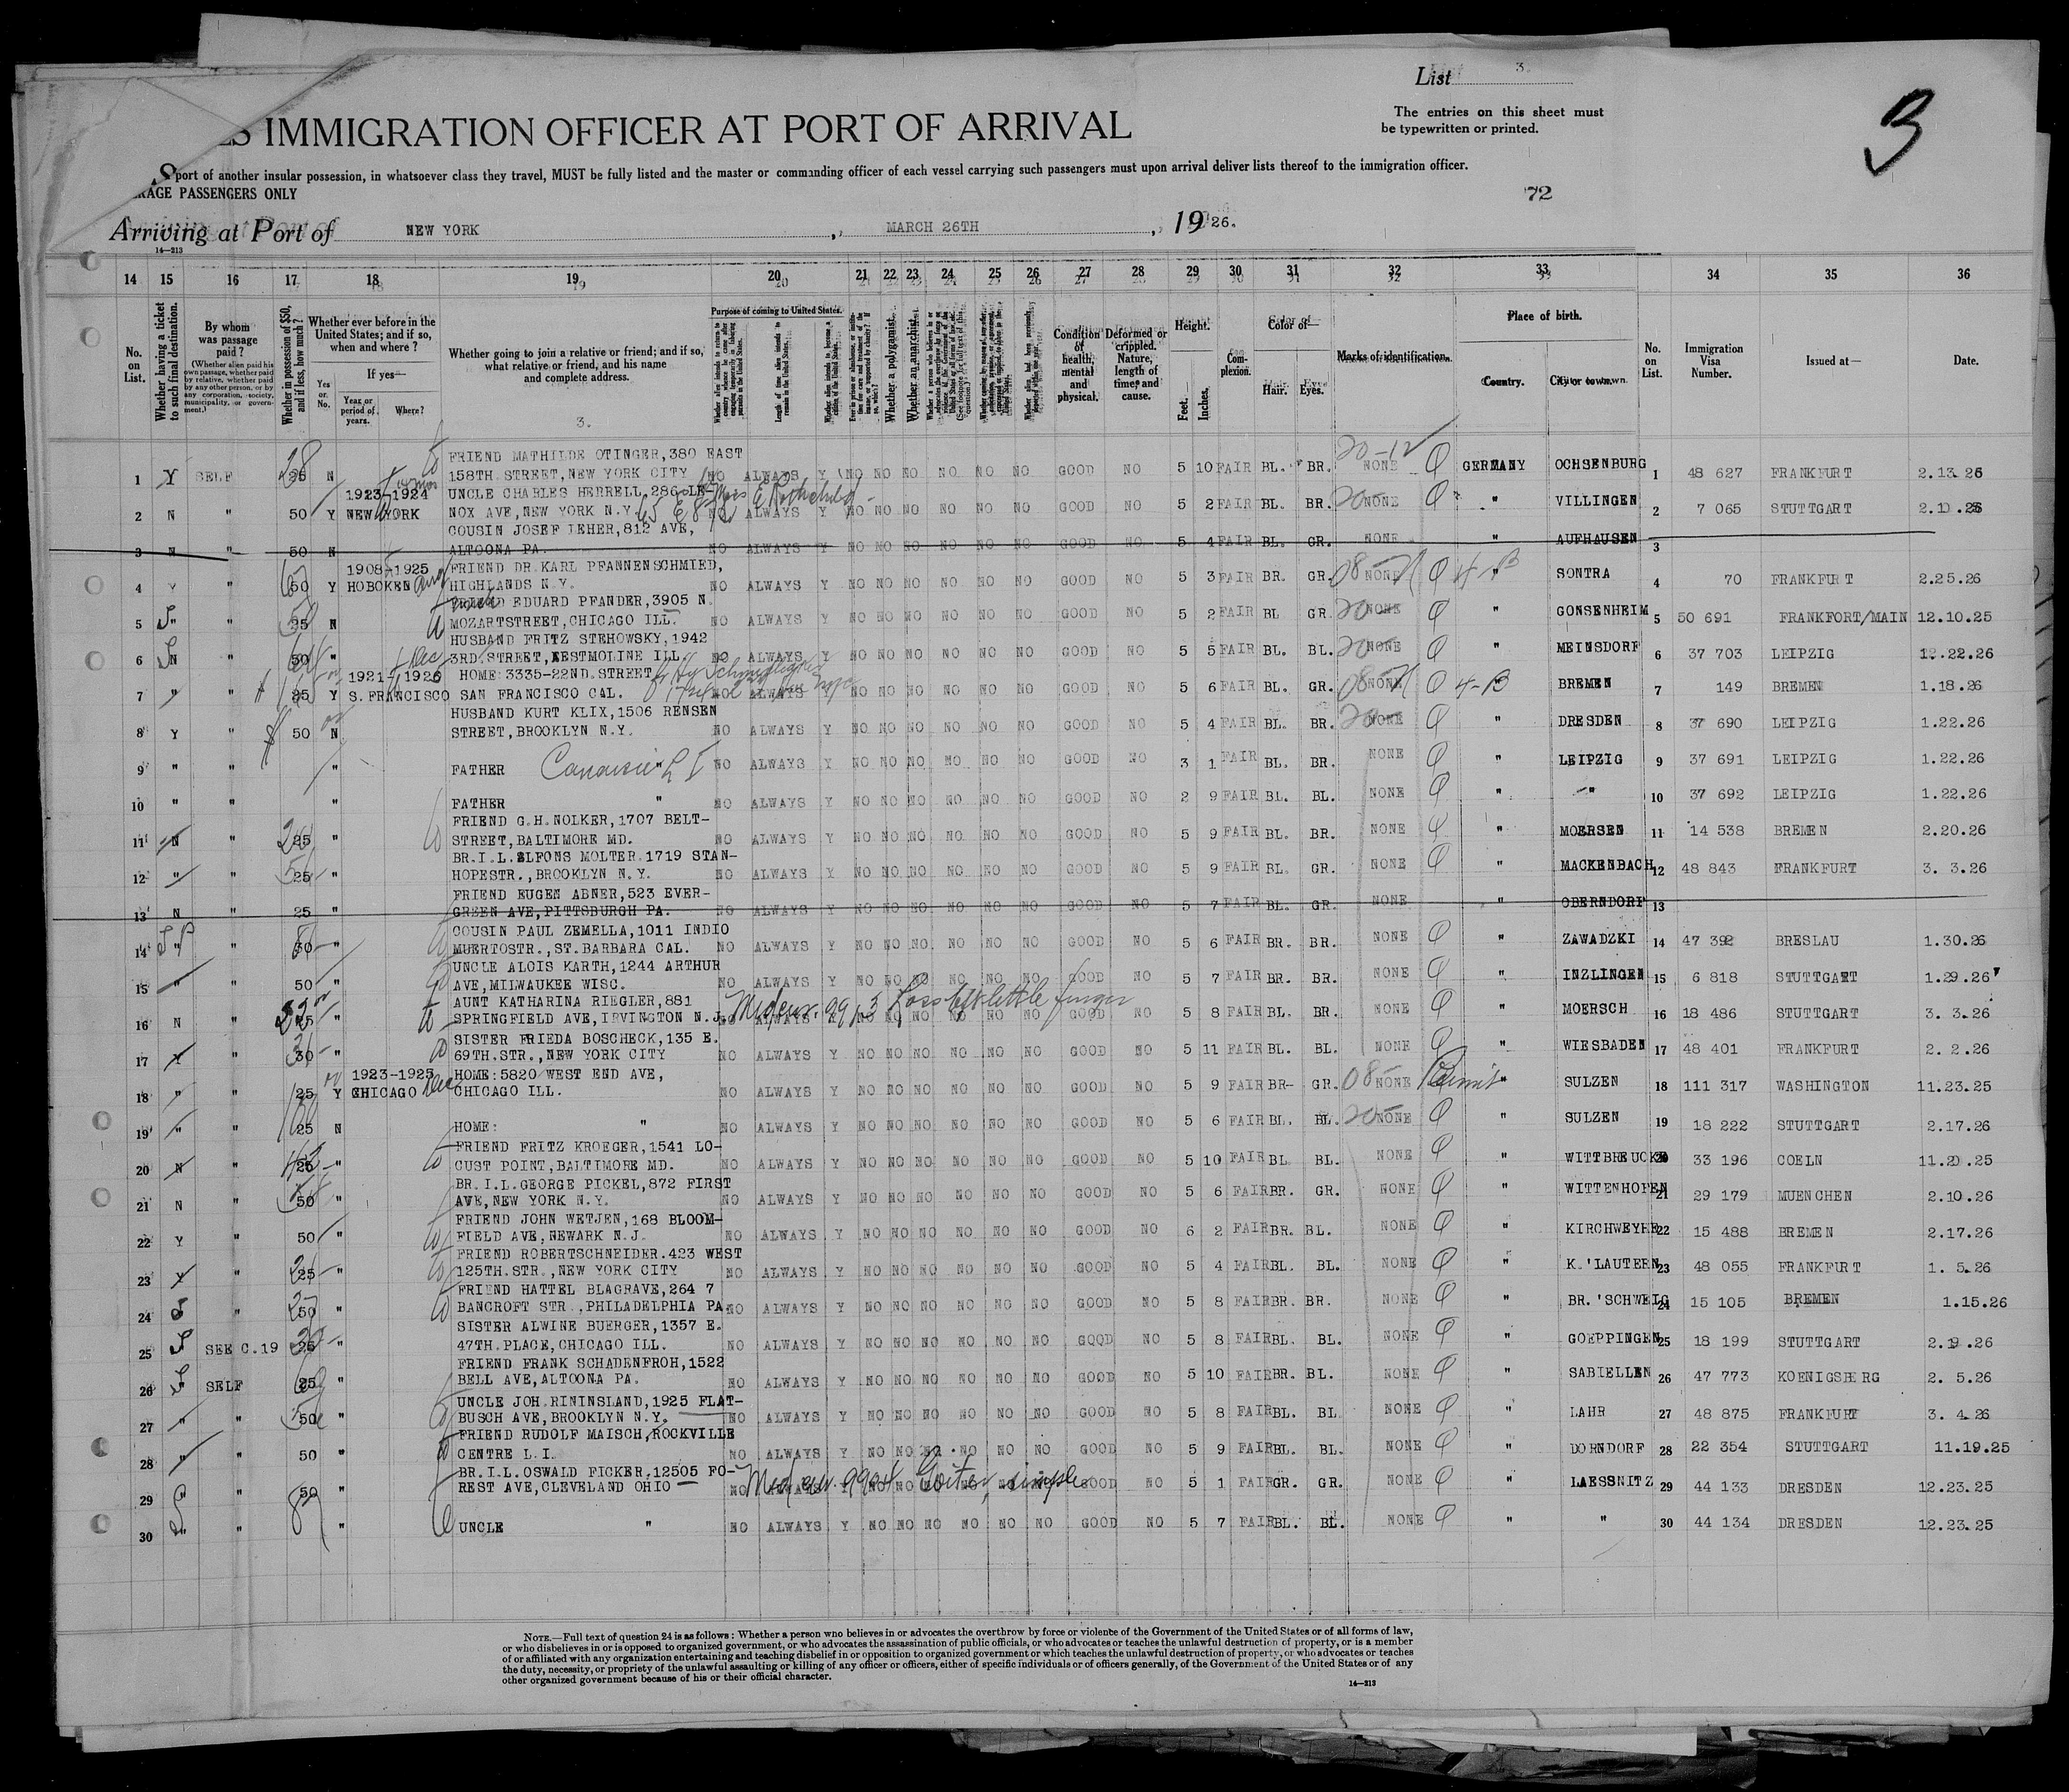 List 3.
The entries on this sheet must
be typewritten or printed.
3
ES IMMIGRATION OFFICER AT PORT OF ARRIVAL
port of another insular possession, in whatsoever class they travel, MUST be fully listed and the master or commanding officer of each vessel carrying such passengers must upon arrival deliver lists thereof to the immigration officer.
RAGE PASSENGERS ONLY
72
Arriving at Port of NEW YORK, MARCH 26TH, 1926.
14—213
14 15 16 17 18 19 20 21 22 23 24 25 26 27 28 29 30 31 32 33 34 35 36
No. on List.
Whether having a ticket to such final destination.
By whom was passage paid?
(Whether alien paid his own passage, whether paid by relative, whether paid by any other person, or by any corporation, society, municipality, or government.)
Whether in possession of $50, and if less, how much?
Whether ever before in the United States; and if so, when and where?
Yes or No.
If yes—
Year or period of years.
Where?
Whether going to join a relative or friend; and if so, what relative or friend, and his name and complete address.
3.
Purpose of coming to United States.
Length of time alien intends to remain in the United States.
Whether a polygamist.
Whether an anarchist.
Condition of health, mental and physical.
Deformed or crippled. Nature, length of time, and cause.
Height.
Feet.
Inches.
Complexion.
Color of—
Hair.
Eyes.
Marks of identification.
Place of birth.
Country.
City or town.
No. on List.
Immigration Visa Number.
Issued at—
Date.
FRIEND MATHILDE OTINGER, 380 EAST
1 Y SELF 25 N 158TH STREET, NEW YORK CITY NO ALWAYS Y NO NO NO NO NO NO GOOD NO 5 10 FAIR BL. BR. NONE GERMANY OCHSENBURG 1 48 627 FRANKFURT 2.13.26
1923-1924 UNCLE CHARLES HERRELL, 286 LE-
2 N " 50 Y NEW YORK NOX AVE, NEW YORK N.Y. NO ALWAYS Y NO NO NO NO NO NO GOOD NO 5 2 FAIR BL. BR. NONE " VILLINGEN 2 7 065 STUTTGART
COUSIN JOSEF IEHER, 812 AVE,
3 N " 50 N ALTOONA PA. NO ALWAYS Y NO NO NO NO NO NO GOOD NO 5 4 FAIR BL. GR. NONE " AUFHAUSEN 3
1908-1925 FRIEND DR. KARL PFANNENSCHMIED,
4 Y " 50 Y HOBOKEN HIGHLANDS N.Y. NO ALWAYS Y NO NO NO NO NO NO GOOD NO 5 3 FAIR BR. GR. NONE " SONTRA 4 70 FRANKFURT 2.25.26
EDUARD PFANDER, 3905 N.
5 " " 35 N MOZARTSTREET, CHICAGO ILL. NO ALWAYS Y NO NO NO NO NO NO GOOD NO 5 2 FAIR BL GR. NONE " GONSENHEIM 5 50 691 FRANKFORT/MAIN 12.10.25
HUSBAND FRITZ STEHOWSKY, 1942
6 N " 50 " 3RD. STREET, WESTMOLINE ILL. NO ALWAYS Y NO NO NO NO NO NO GOOD NO 5 5 FAIR BL. BL. NONE " MEINSDORF 6 37 703 LEIPZIG
1921-1926 HOME: 3335-22ND. STREET
7 " " Y S. FRANCISCO SAN FRANCISCO CAL. NO ALWAYS Y NO NO NO NO NO NO GOOD NO 5 6 FAIR BL. GR. NONE 4-B " BREMEN 7 149 BREMEN 1.18.26
HUSBAND KURT KLIX, 1506 RENSEN
8 Y " 50 N STREET, BROOKLYN N.Y. NO ALWAYS Y NO NO NO NO NO NO GOOD NO 5 4 FAIR BL. BR. NONE " DRESDEN 8 37 690 LEIPZIG 1.22.26
9 " " " FATHER " Canarsie L I NO ALWAYS Y NO NO NO NO NO NO GOOD NO 3 1 FAIR BL. BR. NONE " LEIPZIG 9 37 691 LEIPZIG 1.22.26
10 " " " FATHER " NO ALWAYS Y NO NO NO NO NO NO GOOD NO 2 9 FAIR BL. BL. NONE " " 10 37 692 LEIPZIG 1.22.26
FRIEND G.H. NOLKER, 1707 BELT-
11 N " 25 " STREET, BALTIMORE MD. NO ALWAYS Y NO NO NO NO NO NO GOOD NO 5 9 FAIR BL. BR. NONE " MOERSEN 11 14 538 BREMEN 2.20.26
BR.I.L. ALFONS MOLTER. 1719 STAN-
12 " " 25 " HOPESTR., BROOKLYN N.Y. NO ALWAYS Y NO NO NO NO NO NO GOOD NO 5 9 FAIR BL. GR. NONE " MACKENBACH 12 48 843 FRANKFURT 3. 3.26
FRIEND EUGEN ABNER, 523 EVER-
13 N " 25 " GREEN AVE, PITTSBURGH PA. NO ALWAYS Y NO NO NO NO NO NO GOOD NO 5 7 FAIR BL. GR. NONE " OBERNDORF 13
COUSIN PAUL ZEMELLA, 1011 INDIO
14 " " " MUERTOSTR., ST. BARBARA CAL. NO ALWAYS Y NO NO NO NO NO NO GOOD NO 5 6 FAIR BR. BR. NONE " ZAWADZKI 14 47 392 BRESLAU 1.30.26
UNCLE ALOIS KARTH, 1244 ARTHUR
15 " " 50 " AVE, MILWAUKEE WISC. NO ALWAYS Y NO NO NO NO NO NO GOOD NO 5 7 FAIR BR. BR. NONE " INZLINGEN 15 6 818 STUTTGART 1.29.26
AUNT KATHARINA RIEGLER, 881 Loss left little finger
16 N " 25 " SPRINGFIELD AVE, IRVINGTON N.J. NO ALWAYS Y NO NO NO NO NO NO GOOD NO 5 8 FAIR BL. BR. NONE " MOERSCH 16 18 486 STUTTGART 3. 3.26
SISTER FRIEDA BOSCHECK, 135 E.
17 Y " 30 " 69TH. STR., NEW YORK CITY NO ALWAYS Y NO NO NO NO NO NO GOOD NO 5 11 FAIR BL. BL. NONE " WIESBADEN 17 48 401 FRANKFURT 2. 2.26
1923-1925 HOME: 5820 WEST END AVE,
18 " " 25 Y CHICAGO CHICAGO ILL. NO ALWAYS Y NO NO NO NO NO NO GOOD NO 5 9 FAIR BR- GR. NONE Permit " SULZEN 18 111 317 WASHINGTON 11.23.25
19 " " 25 N HOME: " NO ALWAYS Y NO NO NO NO NO NO GOOD NO 5 6 FAIR BL. BL. NONE " SULZEN 19 18 222 STUTTGART 2.17.26
FRIEND FRITZ KROEGER, 1541 LO-
20 N " 25 " CUST POINT, BALTIMORE MD. NO ALWAYS Y NO NO NO NO NO NO GOOD NO 5 10 FAIR BL BL. NONE " WITTBREUCKE 20 33 196 COELN
BR.I.L. GEORGE PICKEL, 872 FIRST
21 N " 50 " AVE, NEW YORK N.Y. NO ALWAYS Y NO NO NO NO NO NO GOOD NO 5 6 FAIR BR. GR. NONE " WITTENHOFEN 21 29 179 MUENCHEN 2.10.26
FRIEND JOHN WETJEN, 168 BLOOM-
22 Y " 50 " FIELD AVE, NEWARK N.J. NO ALWAYS Y NO NO NO NO NO NO GOOD NO 6 2 FAIR BR. BL. NONE " KIRCHWEYHE 22 15 488 BREMEN 2.17.26
FRIEND ROBERTSCHNEIDER. 423 WEST
23 Y " 25 " 125TH. STR., NEW YORK CITY NO ALWAYS Y NO NO NO NO NO NO GOOD NO 5 4 FAIR BL. BL. NONE " K.'LAUTERN 23 48 055 FRANKFURT 1. 5.26
FRIEND HATTEL BLAGRAVE, 264 7
24 " 50 " BANCROFT STR., PHILADELPHIA PA. NO ALWAYS Y NO NO NO NO NO NO GOOD NO 5 8 FAIR BR. BR. NONE " BR.'SCHWEIG 24 15 105 BREMEN 1.15.26
SISTER ALWINE BUERGER, 1357 E.
25 SEE C.19 25 " 47TH. PLACE, CHICAGO ILL. NO ALWAYS Y NO NO NO NO NO NO GOOD NO 5 8 FAIR BL. BL. NONE " GOEPPINGEN 25 18 199 STUTTGART
FRIEND FRANK SCHADENFROH, 1522
26 " SELF 25 " BELL AVE, ALTOONA PA. NO ALWAYS Y NO NO NO NO NO NO GOOD NO 5 10 FAIR BR. BL. NONE " SABIELLEN 26 47 773 KOENIGSBERG 2. 5.26
UNCLE JOH. RININSLAND, 1925 FLAT-
27 " " 50 " BUSCH AVE, BROOKLYN N.Y. NO ALWAYS Y NO NO NO NO NO NO GOOD NO 5 8 FAIR BL. BL NONE " LAHR 27 48 875 FRANKFURT 3. 4.26
FRIEND RUDOLF MAISCH, ROCKVILLE
28 " " 50 " CENTRE L.I. NO ALWAYS Y NO NO NO NO NO NO GOOD NO 5 9 FAIR BL. BL. NONE " DORNDORF 28 22 354 STUTTGART 11.19.25
BR.I.L. OSWALD FICKER, 12505 FO- Goiter, simple
29 " " 50 " REST AVE, CLEVELAND OHIO NO ALWAYS Y NO NO NO NO GOOD NO 5 1 FAIR GR. GR. NONE " LAESSNITZ 29 44 133 DRESDEN 12.23.25
30 " " " UNCLE " NO ALWAYS Y NO NO NO NO NO NO GOOD NO 5 7 FAIR BL. BL. NONE " " 30 44 134 DRESDEN 12.23.25
NOTE.—Full text of question 24 is as follows: Whether a person who believes in or advocates the overthrow by force or violence of the Government of the United States or of all forms of law,
or who disbelieves in or is opposed to organized government, or who advocates the assassination of public officials, or who advocates or teaches the unlawful destruction of property, or is a member
of or affiliated with any organization entertaining and teaching disbelief in or opposition to organized government or which teaches the unlawful destruction of property, or who advocates or teaches
the duty, necessity, or propriety of the unlawful assaulting or killing of any officer or officers, either of specific individuals or of officers generally, of the Government of the United States or of any
other organized government because of his or their official character.
14—213